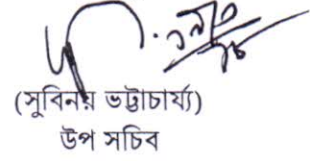 (সুবিনয় ভট্টাচার্য্য)
উপ সচিব